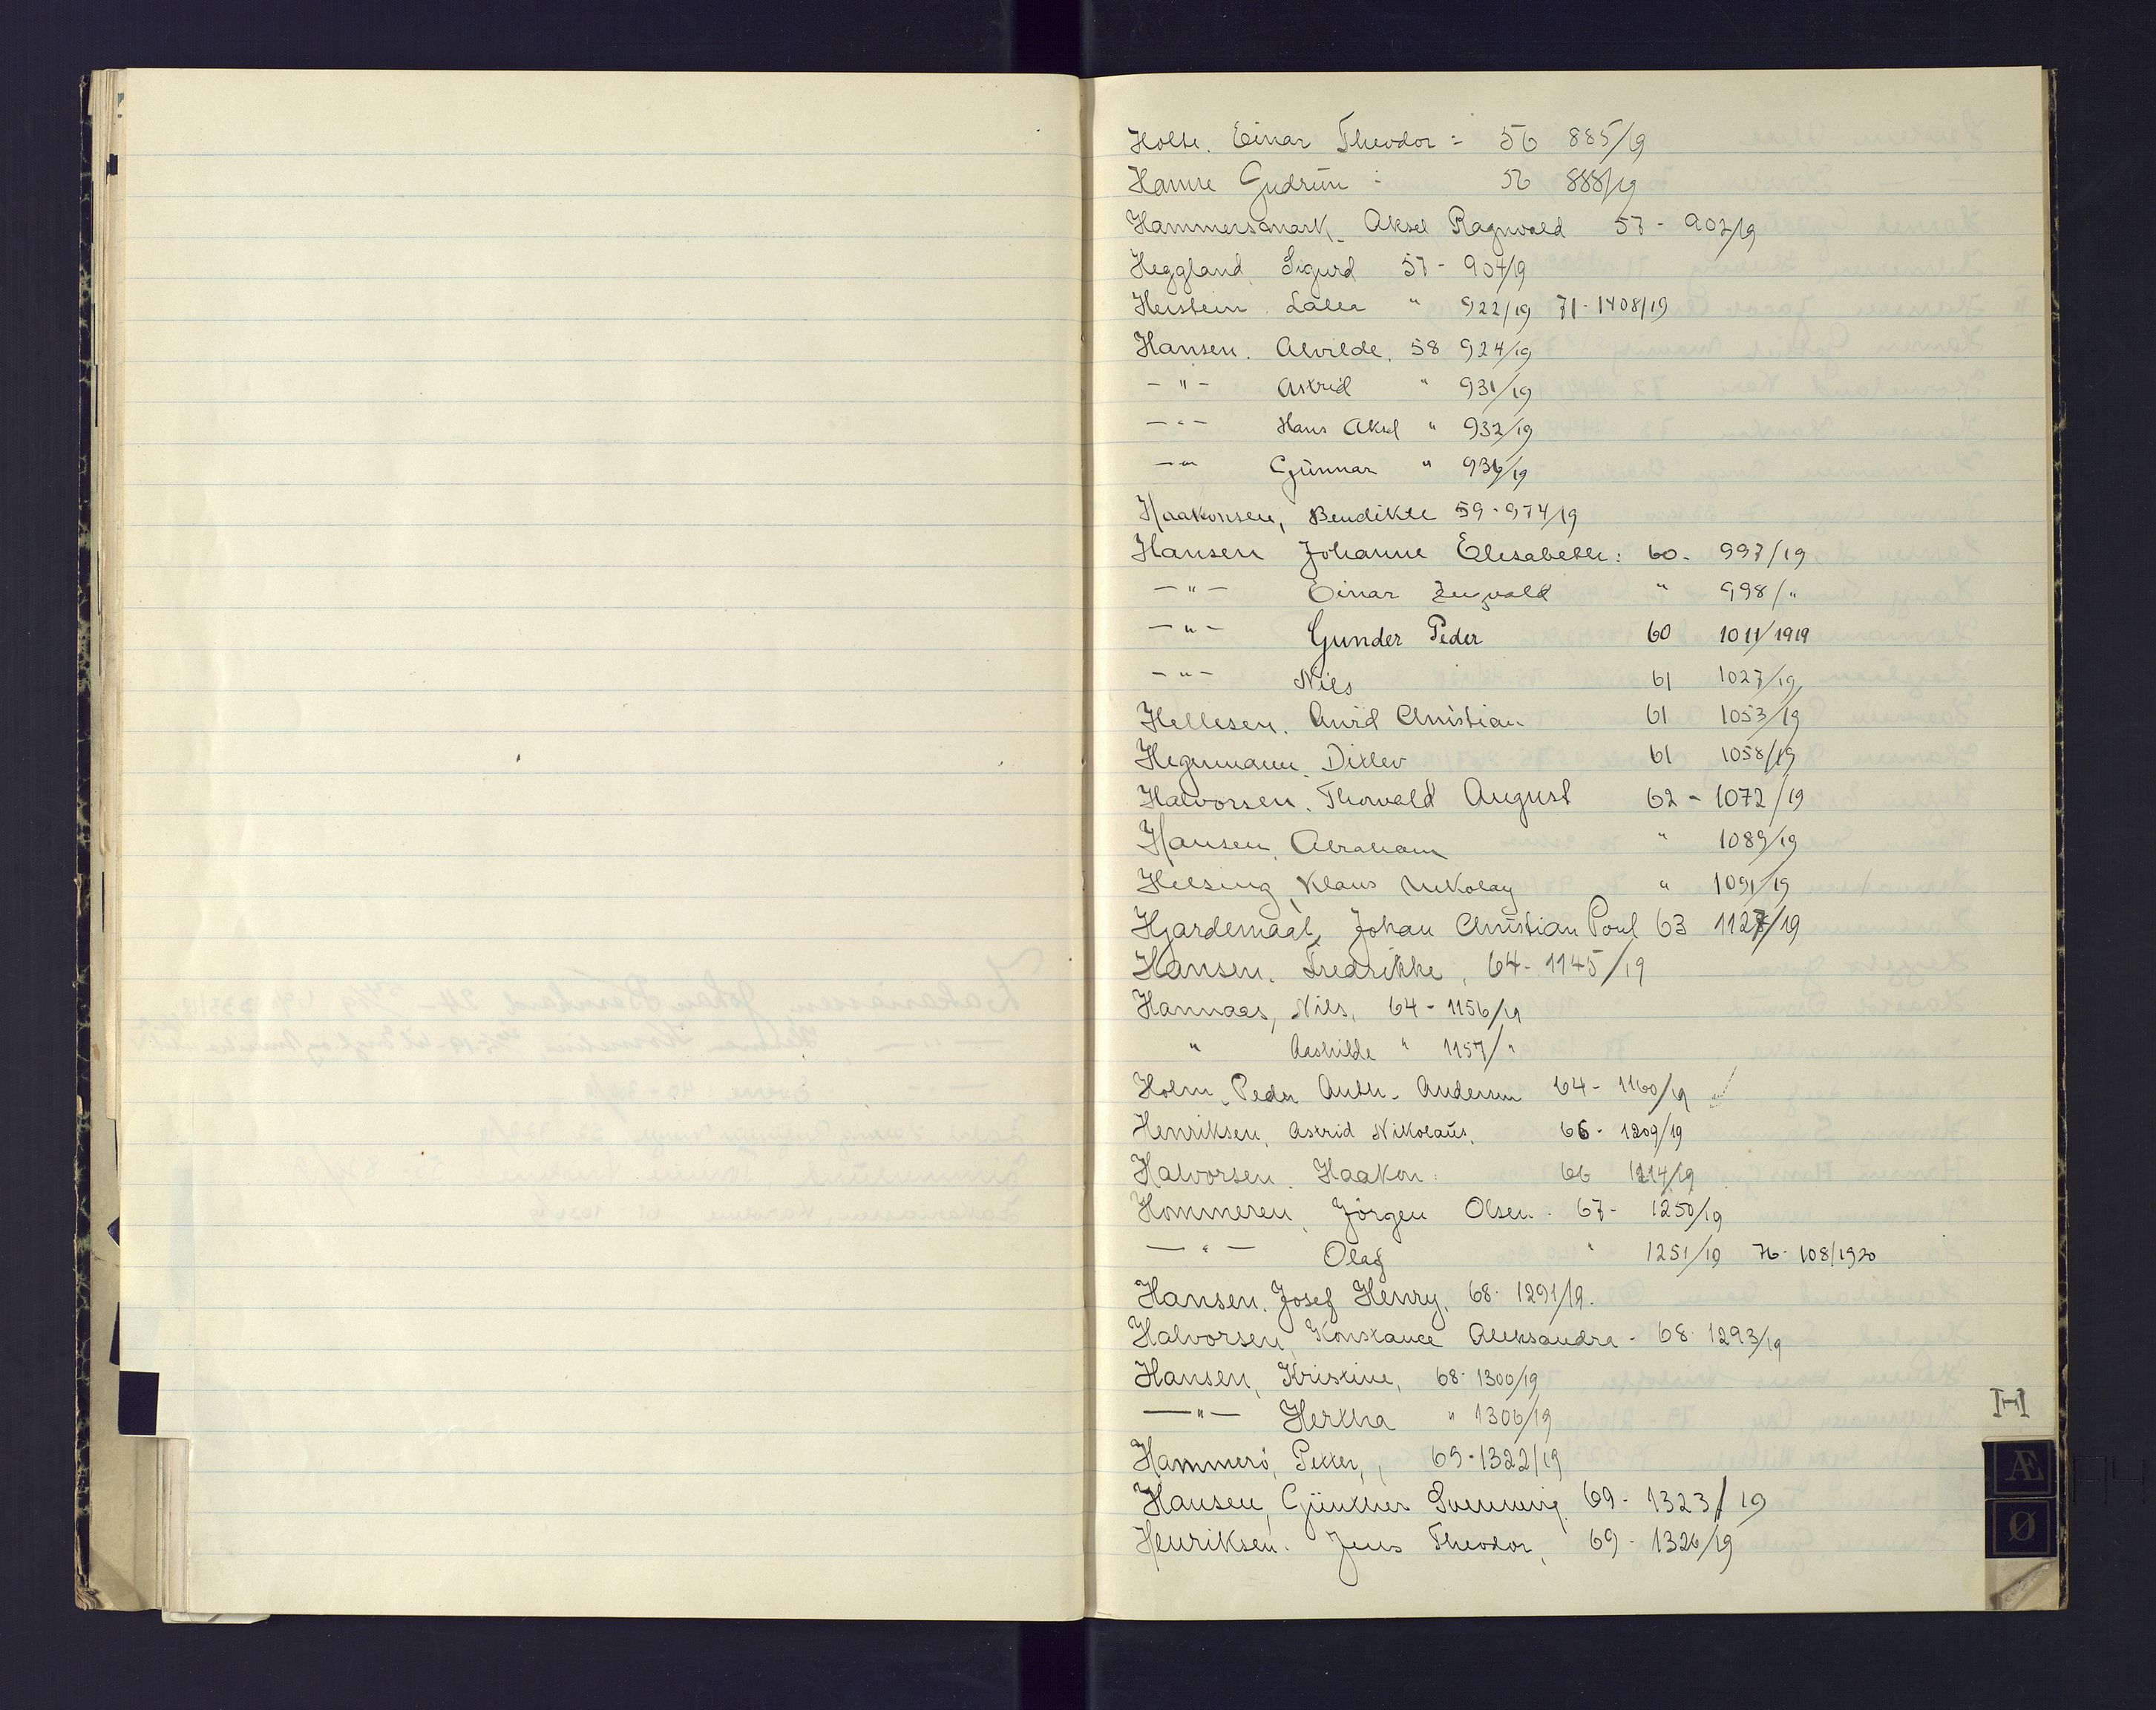 Holte. Einar Theodor = 56 885/19
Hamre Gudrun : 56 888/19
Hammersmark. Aksel Ragnvald 57 - 902/19
Heggland Sigurd 57 - 904/19
Heistein Lalla " 922/19 71 - 1408/19
Hansen. Alvilde. 58 924/19
- " - Astrid " 931/19
- " - Hans Aksel " 932/19
- " - Gunnar " 936/19
Haakonsen, Bendikte 59 - 974/19
Hansen Johanne Elisabeth : 60 - 997/19
- " - Einar " 998/"
- " - Gunder Peder 60 1011/1919
- " - Nils 61 1027/19
Hellesen. Arvid Christian 61 1053/19
Hegnmann. Ditlev 61 1058/19
Halvorsen. Thorvald August 62 - 1072/19
Hansen, Abraham " 1089/19
Helsing, Klaus Nikolay " 1091/19
Hjardemaal, Johan Christian Poul 63 1127/19
Hansen. Fredrikke, 64 - 1145/19
Hannaas, Nils, 64 - 1156/19
" Aashilde " 1157/"
Holm, Peder Anth. Andersen 64 - 1160/19
Henriksen, Astrid Nikolaus, 66 - 1209/19
Halvorsen. Haakon : 66 1214/19
Hommeren, Jörgen Olsen. 67 - 1250/19
- " - Olaf " 1251/19 76 - 108/1920
Hansen. Josef Henry. 68 - 1291/19.
Halvorsen, Konstance Aleksandra - 68 - 1293/19
Hansen, Kristine, 68 - 1300/19
- " - Hertha " 1306/19
Hammerö, Petter, 69 - 1322/19
Hansen, Günther 69 - 1323/19
Henriksen. Jens Theodor, 69 - 1326/19
H
Æ
Ø